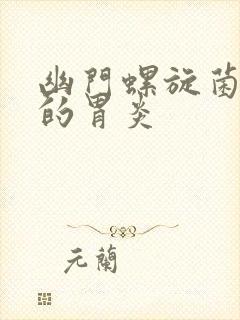 幽門螺旋菌
的胃炎
元蘭